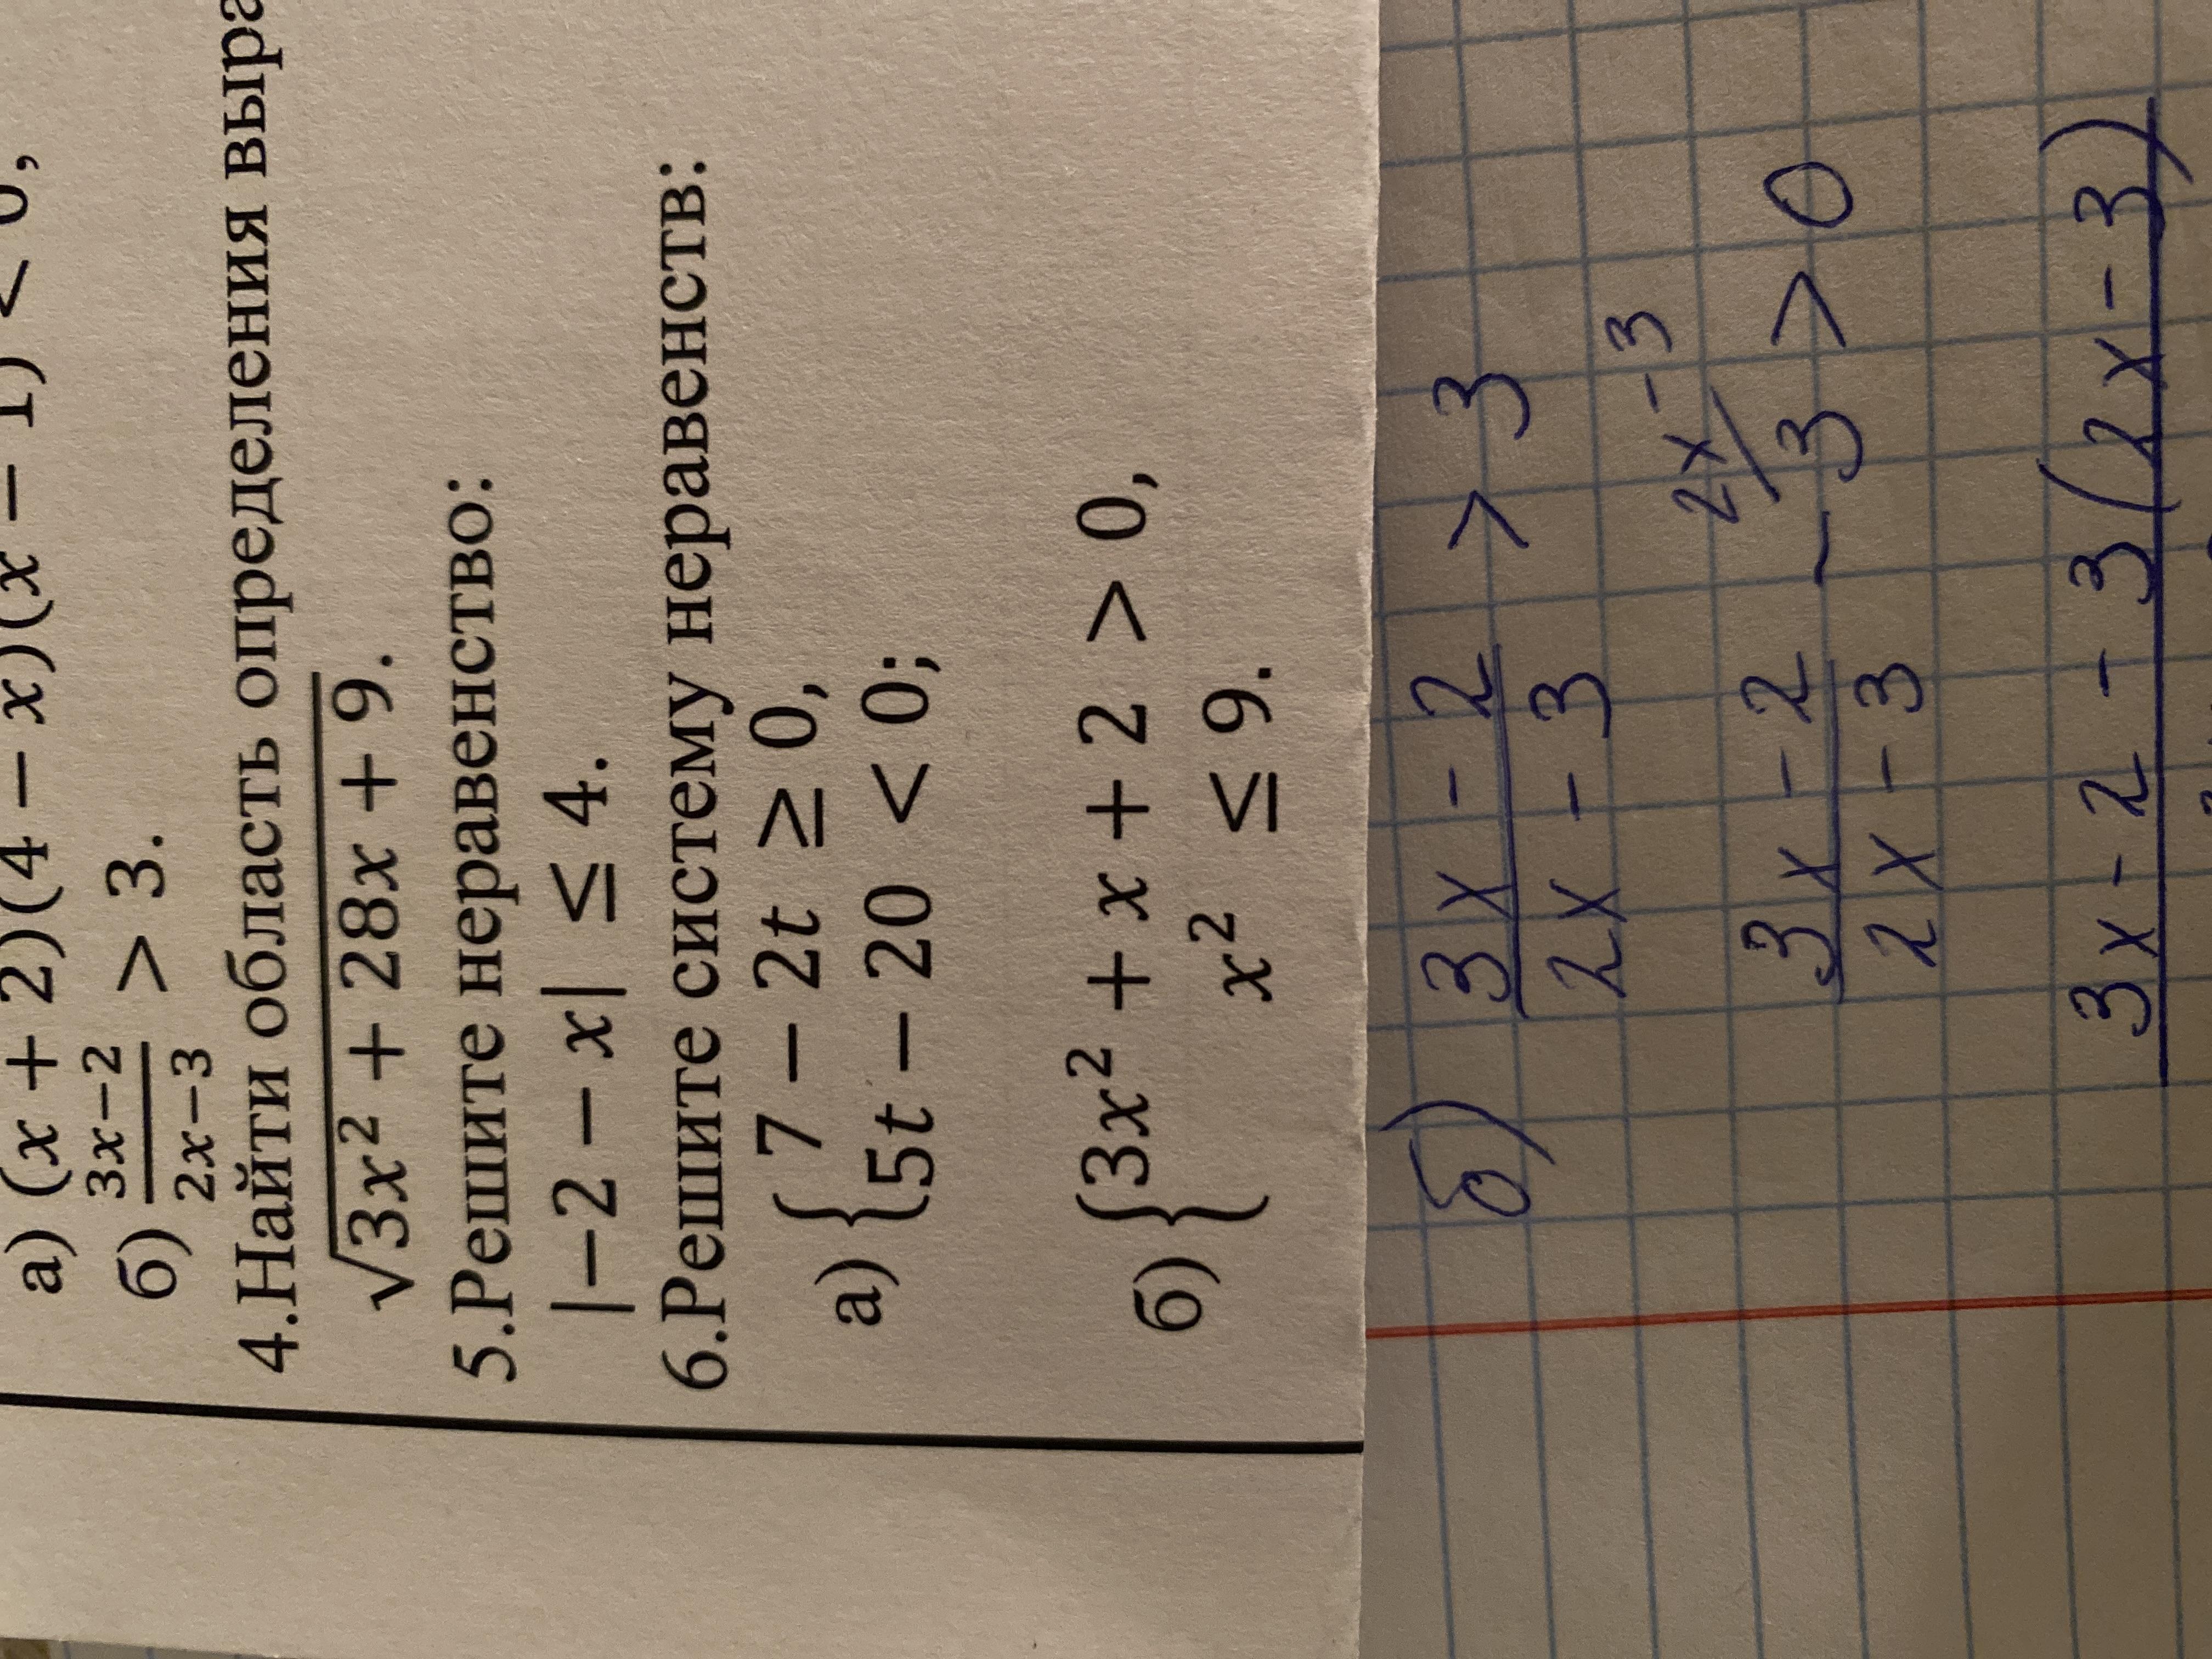 а) (x + 2)(4 − x)(x − 1) < 0,
б) \frac{3x−2}{2x−3} > 3.
4.Найти область определения
√3x² + 28x + 9.
5.Решите неравенство:
|−2 − x| ≤ 4.
6.Решите систему неравенств:
а) { 7 − 2t ≥ 0,
5t − 20 < 0;
б) { 3x² + x + 2 > 0,
x² ≤ 9.
б) \frac{3x − 2}{2x − 3} > 3
\frac{3x − 2}{2x − 3} − 3 /2x − 3 > 0
3x − 2 − 3(2x − 3)